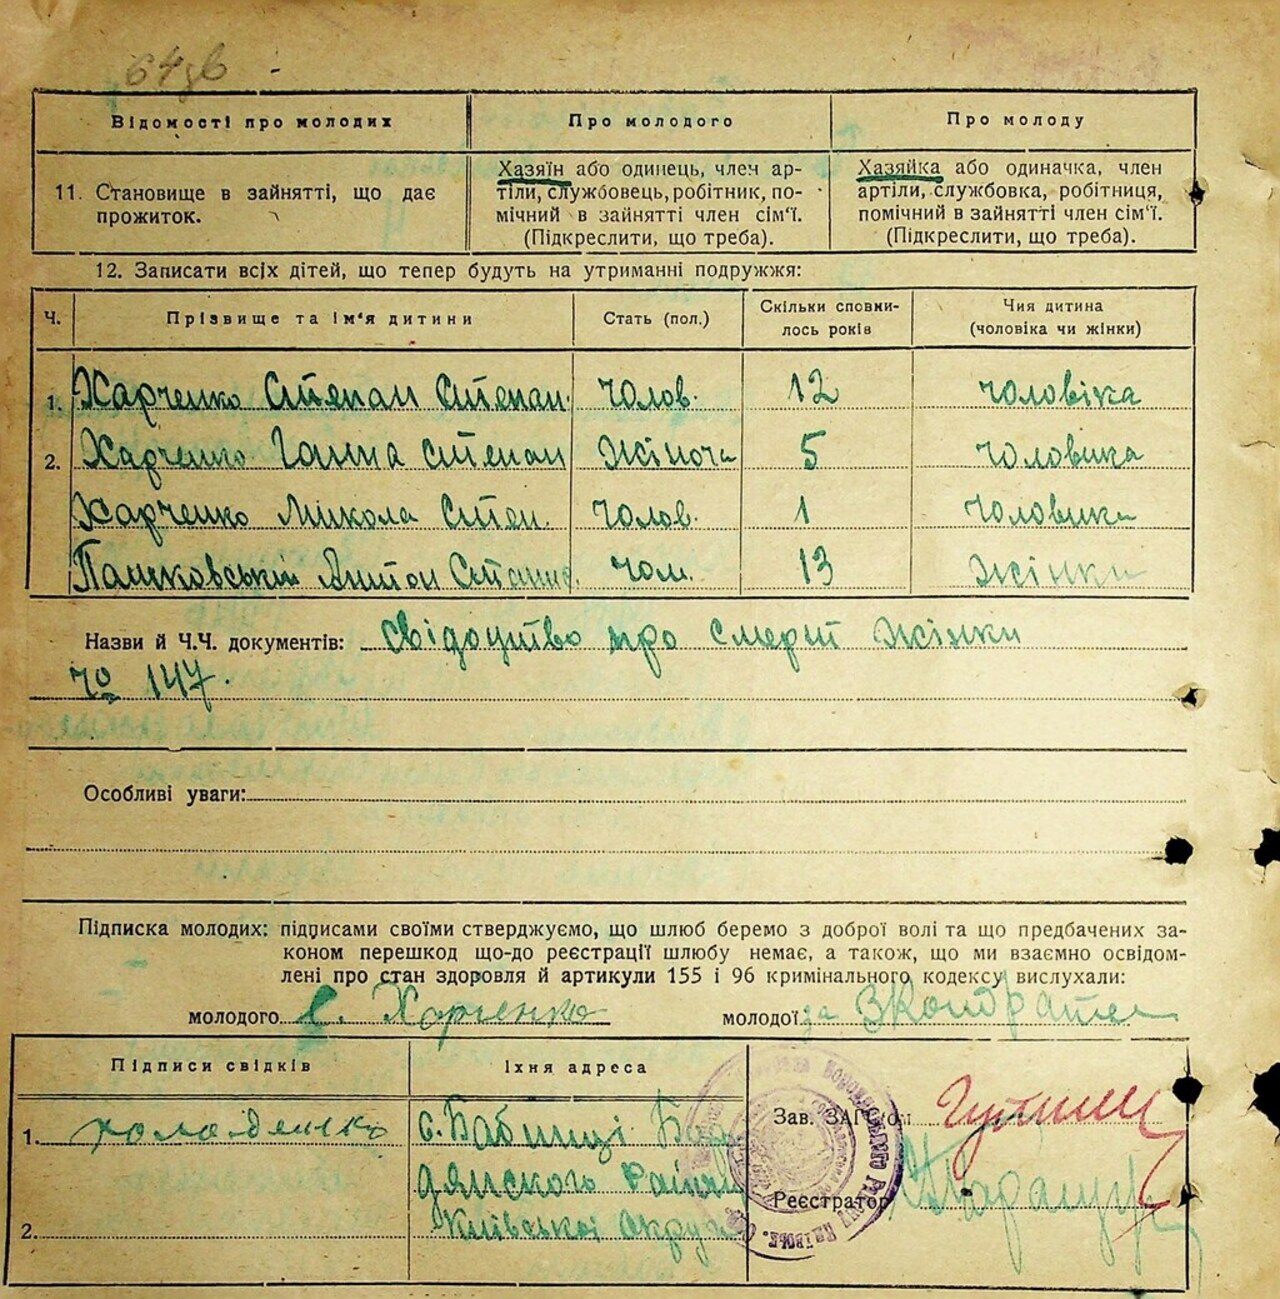 64зв
Відомості про молодих
Про молодого
Про молоду
11. Становище в зайнятті, що дає
прожиток.
Хазяїн або одинець, член ар-
тіли, службовець, робітник, по-
мічний в зайнятті член сім'ї.
(Підкреслити, що треба).
Хазяйка або одиначка, член
артіли, службовка, робітниця,
помічний в зайнятті член сім'ї.
(Підкреслити, що треба).
12. Записати всіх дітей, що тепер будуть на утриманні подружжя:
Ч. Прізвище та ім'я дитини Стать (пол.) Скільки сповни-
лось років Чия дитина
(чоловіка чи жінки)
1. Харченко Степан Степан. чолов. 12 чоловіка
2. Харченко Ганна Степан жіноча 5 чоловика
Харченко Микола Степ. чолов. 1 чоловика
Антон чол. 13 жінки
Назви й Ч.Ч. документів: Свідоцтво про смерт жінки
№ 147.
Особливі уваги:
Підписка молодих: підписами своїми стверджуємо, що шлюб беремо з доброї волі та що предбачених за-
коном перешкод що-до реєстрації шлюбу немає, а також, що ми взаємно освідом-
лені про стан здоровля й артикули 155 і 96 кримінального кодексу вислухали:
молодого С. Харченко молодої за
Підписи свідків
Їхня адреса
1. холоденко
с. Бабинці Бор
дянского Району
Київської округи
2.
Зав. ЗАГСом
Реєстратор